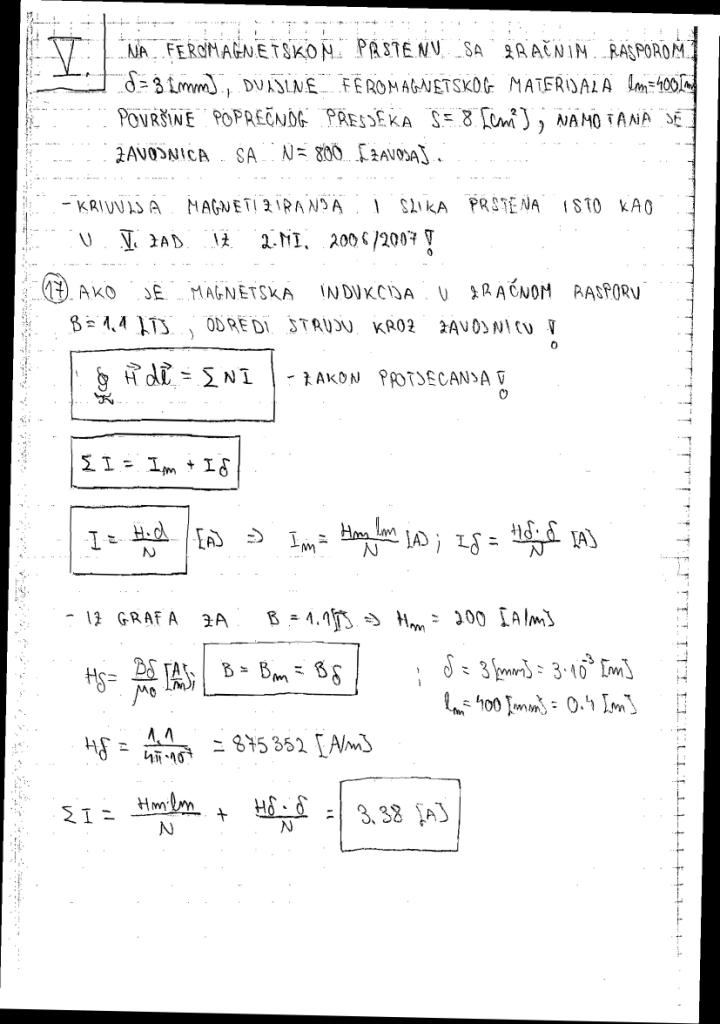 V. NA FEROMAGNETSKOM PRSTENU SA ZRAČNIM RASPOROM
δ=3[mm], DULJINE FEROMAGNETSKOG MATERIJALA lm=400[m
POVRŠINE POPREČNOG PRESJEKA S=8[cm²], NAMOTANA JE
ZAVOJNICA SA N=800 [ZAVOJA].
- KRIVULJA MAGNETIZIRANJA I SLIKA PRSTENA ISTO KAO
U V. ZAD IZ 2.MI. 2006/2007!
17 AKO JE MAGNETSKA INDUKCIJA U ZRAČNOM RASPORU
B=1.1[T], ODREDI STRUJU KROZ ZAVOJNICU!
∮ H⃗ dl⃗ = ΣNI - ZAKON PROTJECANJA!
ΣI = Im + Iδ
I = H·d/N [A] ⇒ Im = Hm lm/N [A]; Iδ = Hδ·δ/N [A]
- IZ GRAFA ZA B = 1.1[T] ⇒ Hm = 200 [A/m]
Hδ = Bδ/μ0 [A/m]; B = Bm = Bδ ; δ = 3[mm] = 3·10⁻³ [m]
lm = 400[mm] = 0.4 [m]
Hδ = 1.1/4π·10⁻⁷ = 875352 [A/m]
ΣI = Hm·lm/N + Hδ·δ/N = 3.38 [A]